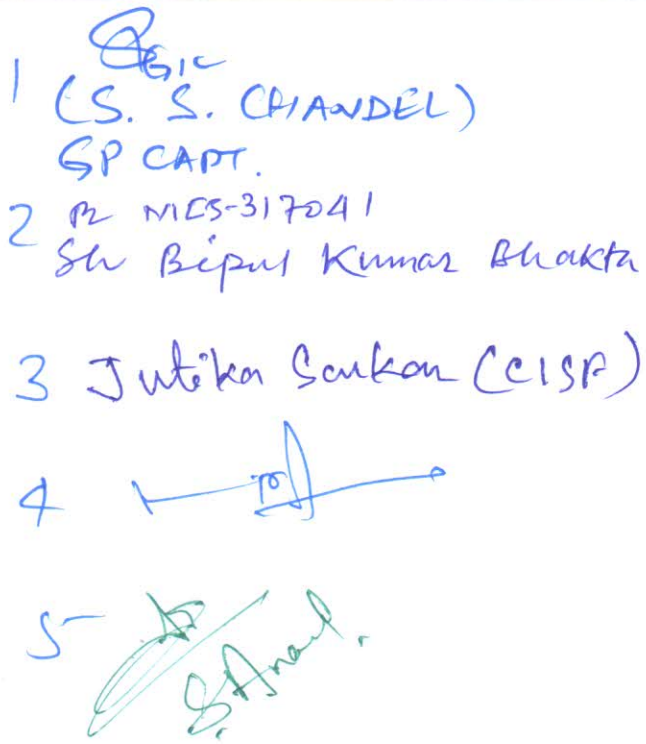 1
(S. S. CHANDEL)
GP CAPT.
2 MES-317041
Sh Bipul Kumar Bhakta
3 Jutika Sarkar (CISF)
4
5
S. Anand.